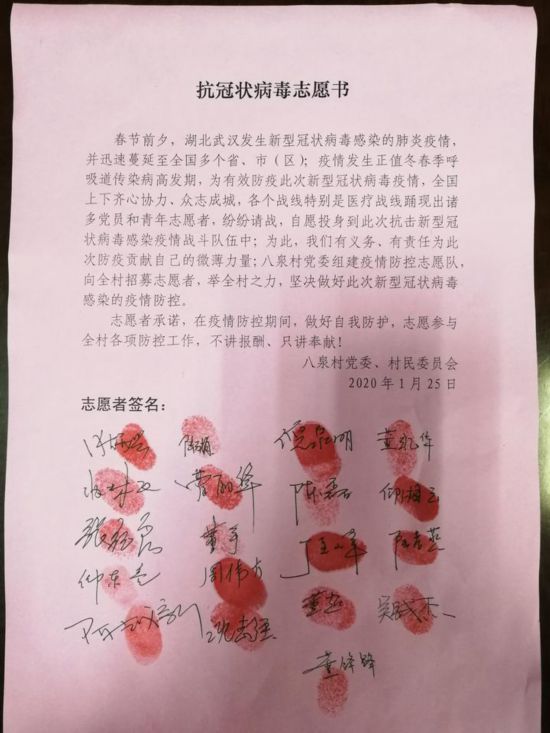 抗冠状病毒志愿书
春节前夕，湖北武汉发生新型冠状病毒感染的肺炎疫情，
并迅速蔓延至全国多个省、市（区）；疫情发生正值冬春季呼
吸道传染病高发期，为有效防疫此次新型冠状病毒疫情，全国
上下齐心协力、众志成城，各个战线特别是医疗战线踊现出诸
多党员和青年志愿者，纷纷请战，自愿投身到此次抗击新型冠
状病毒感染疫情战斗队伍中；为此，我们有义务、有责任为此
次防疫贡献自己的微薄力量；八泉村党委组建疫情防控志愿队，
向全村招募志愿者，举全村之力，坚决做好此次新型冠状病毒
感染的疫情防控。
志愿者承诺，在疫情防控期间，做好自我防护，志愿参与
全村各项防控工作，不讲报酬、只讲奉献！
八泉村党委、村民委员会
2020年1月25日
志愿者签名：
倪品明
曹丽华
周伟方
董超
董锋锋